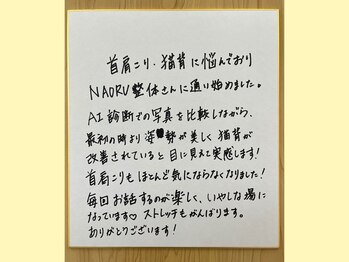 首肩こり・猫背に悩んでおり
NAORU整体さんに通い始めました。
AI診断での写真を比較しながら、
最初の時より姿勢が美しく猫背が
改善されていると目に見えて実感します!
首肩こりもほとんど気にならなくなりました!
毎回お話するのが楽しく、いやしな場に
なっています♡ ストレッチもがんばります。
ありがとうございます!